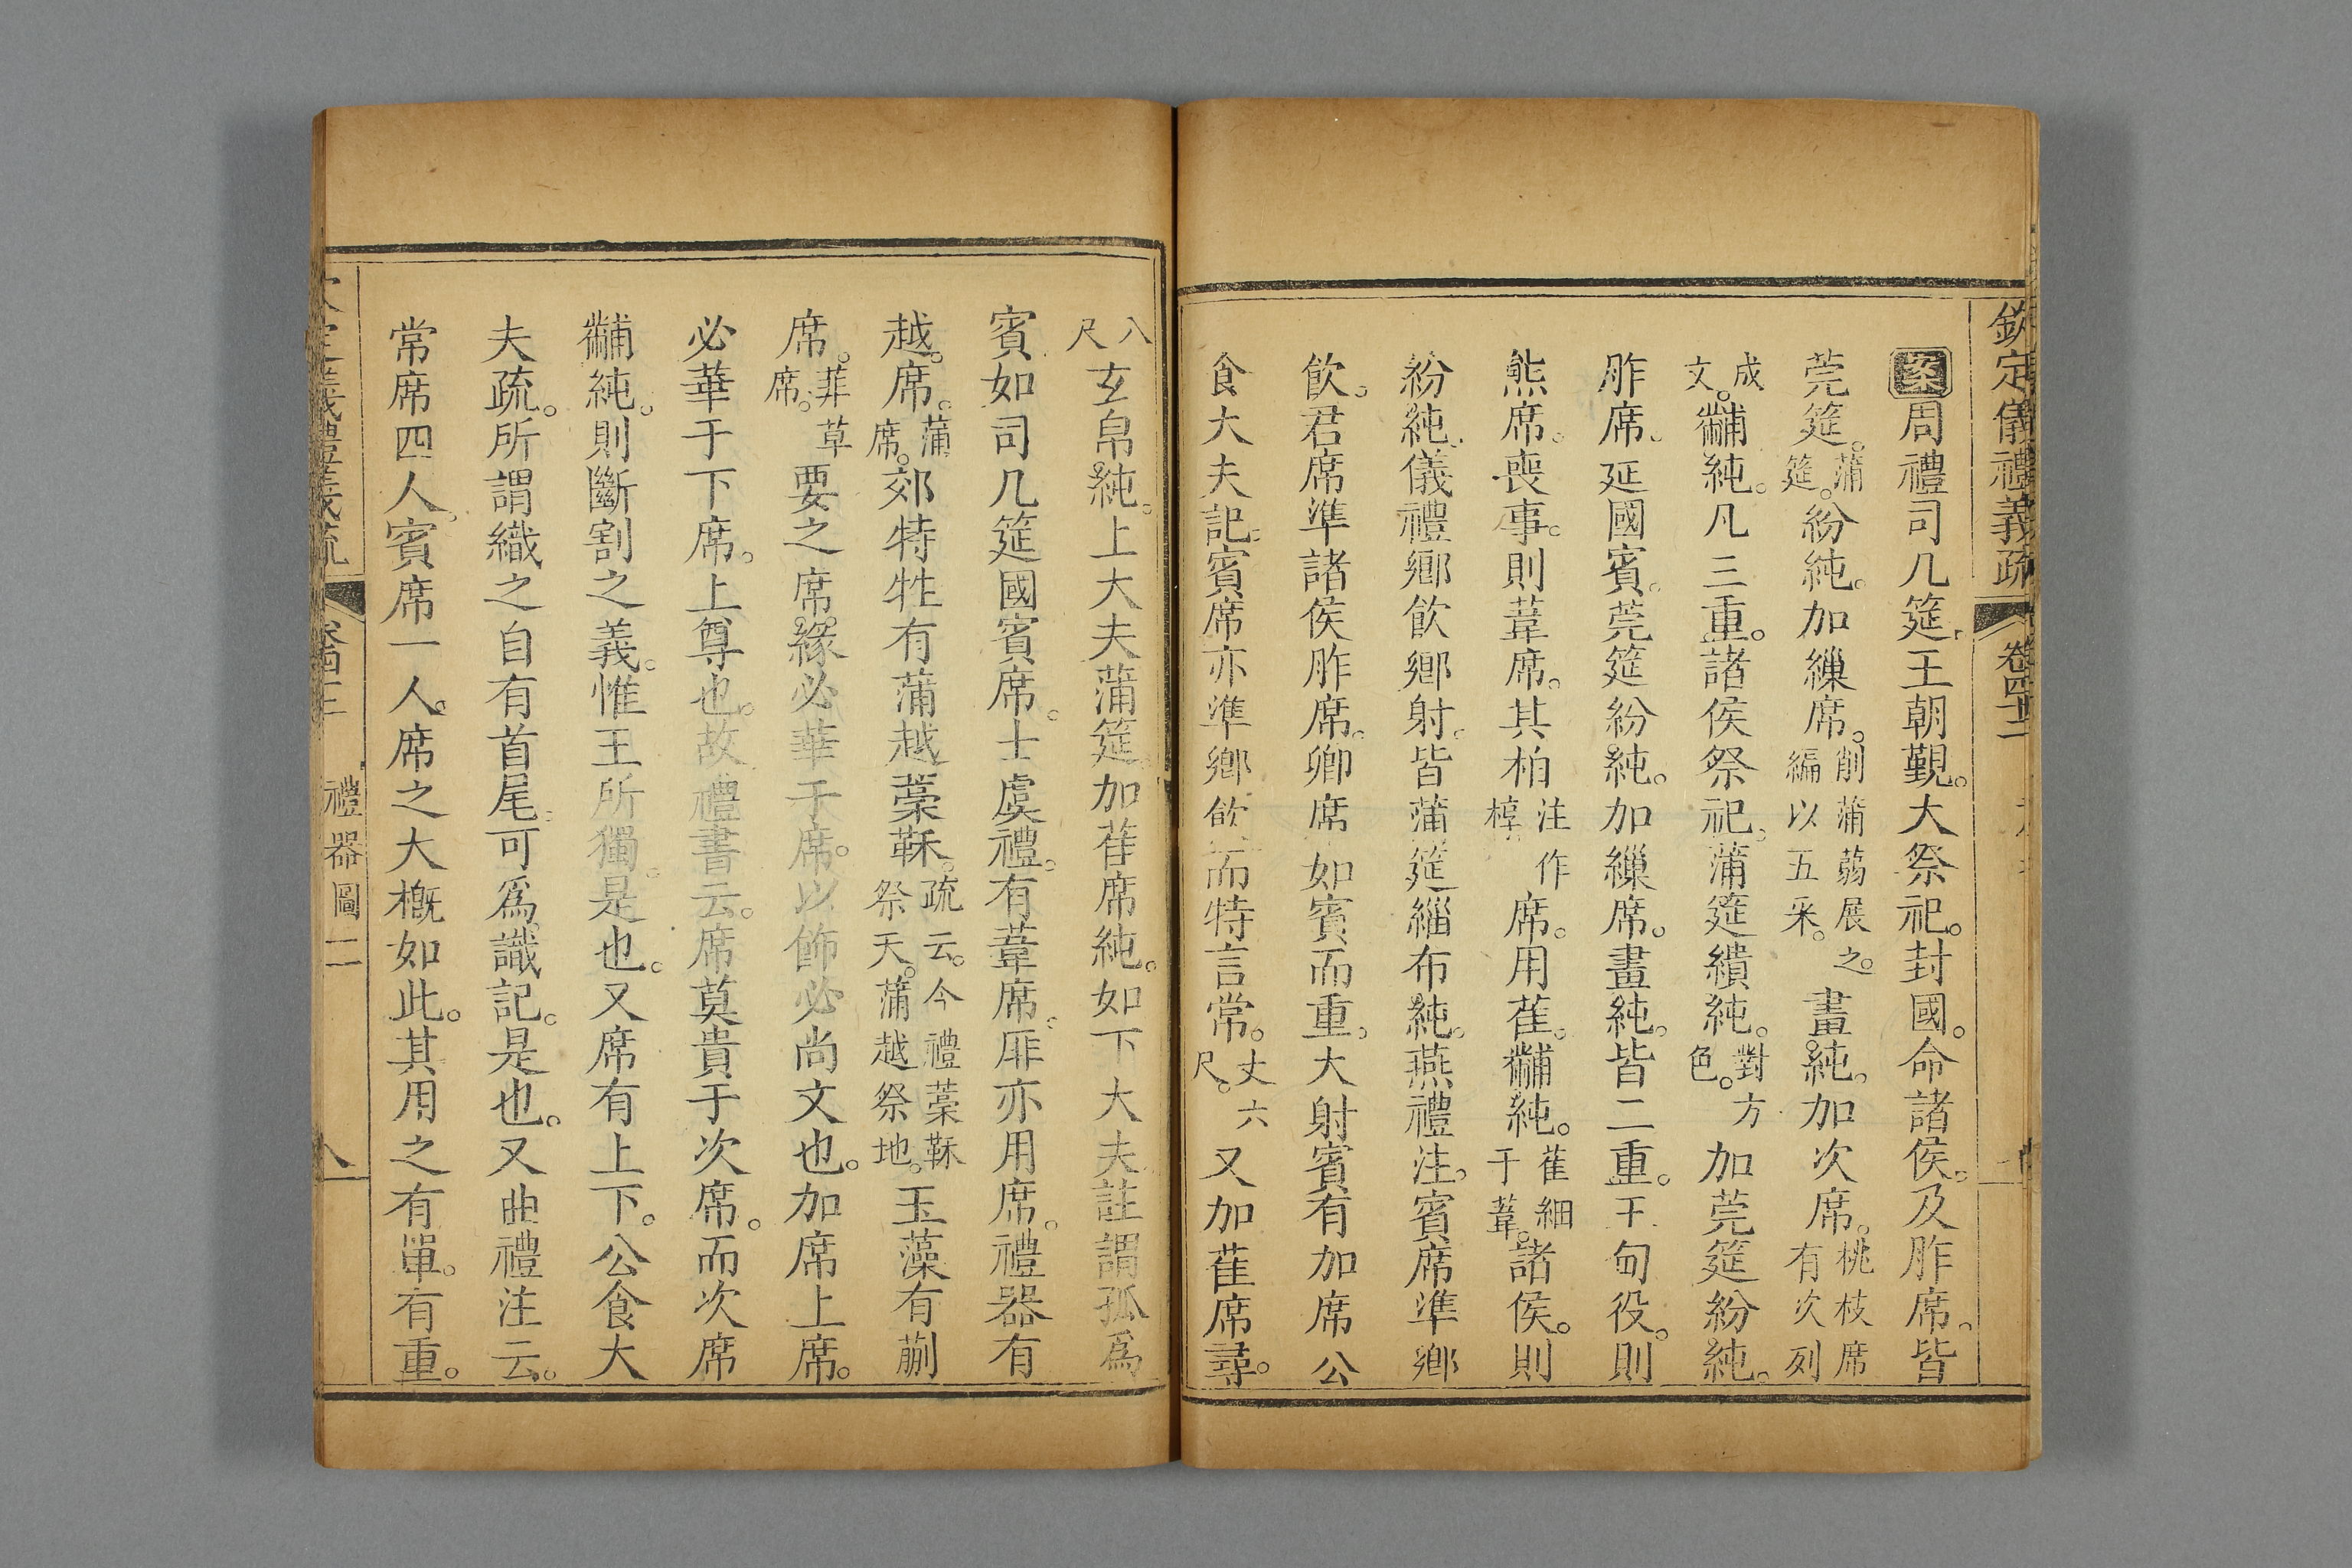 欽定儀禮義疏 卷四十二
案周禮司几筵王朝覲。大祭祀。封國。命諸侯。及胙席。皆
莞筵。蒲筵。紛純。加繅席。削蒲蒻展之。編以五采。畫純。加次席。桃枝席有次列
成文。黼純。凡三重。諸侯祭祀。蒲筵繢純。對方色。加莞筵紛純。
胙席。延國賓。莞筵紛純。加繅席。畫純。皆二重。王甸役。則
熊席。喪事。則葦席。其柏注作椁席。用萑。黼純。萑細于葦。諸侯。則
紛純。儀禮鄉飲鄉射。皆蒲筵緇布純。燕禮注。賓席準鄉
飲。君席準諸侯胙席。卿席如賓而重。大射賓有加席公
食大夫記。賓席亦準鄉飲而特言常。丈六尺。又加萑席尋。
八尺玄帛純。上大夫蒲筵加萑席純。如下大夫註謂孤爲
賓如司几筵國賓席。士虞禮。有葦席。厞亦用席。禮器有
越。席。蒲席。郊特牲有蒲越藁鞂。疏云。今禮藁鞂祭天。蒲越祭地。玉藻有蒯
席。菲草席。要之席緣必華于席。以飾必尚文也。加席上席。
必華于下席。上尊也。故禮書云。席莫貴于次席。而次席
黼純。則斷割之義。惟王所獨。是也。又席有上下。公食大
夫疏。所謂織之自有首尾。可爲識記。是也。又曲禮注云。
常席四人。賓席一人。席之大槪如此。其用之有單。有重。
禮器圖二 八